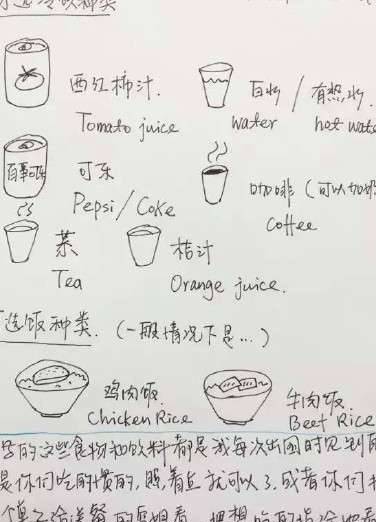 选冷饮种类
西红柿汁.
Tomato juice
白水 / 有热水.
water
hot wate
百事可乐
可乐
Pepsi/Coke
咖啡 (可以加奶
Coffee
茶
Tea
桔汁
Orange juice.
选饭种类. (一般情况下是...)
鸡肉饭
Chicken Rice
牛肉饭
Beef Rice
的这些食物和饮料都是我每次出国时见到
是你们吃的惯的, 照着点就可以了, 或者你们
给送餐的 看